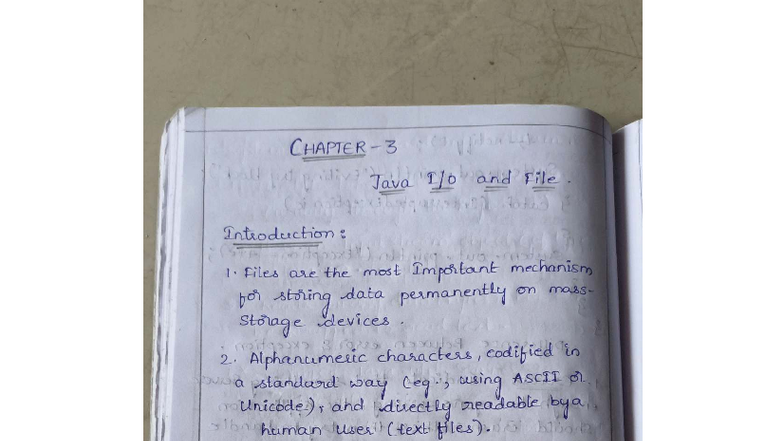 CHAPTER - 3
Java I/O and File.
Introduction :
1. Files are the most Important mechanism
for storing data permanently on mass-
storage devices.
2. Alphanumeric characters, codified in
a standard way (eg., using ASCII or
Unicode), and directly readable by a
human user (text files).